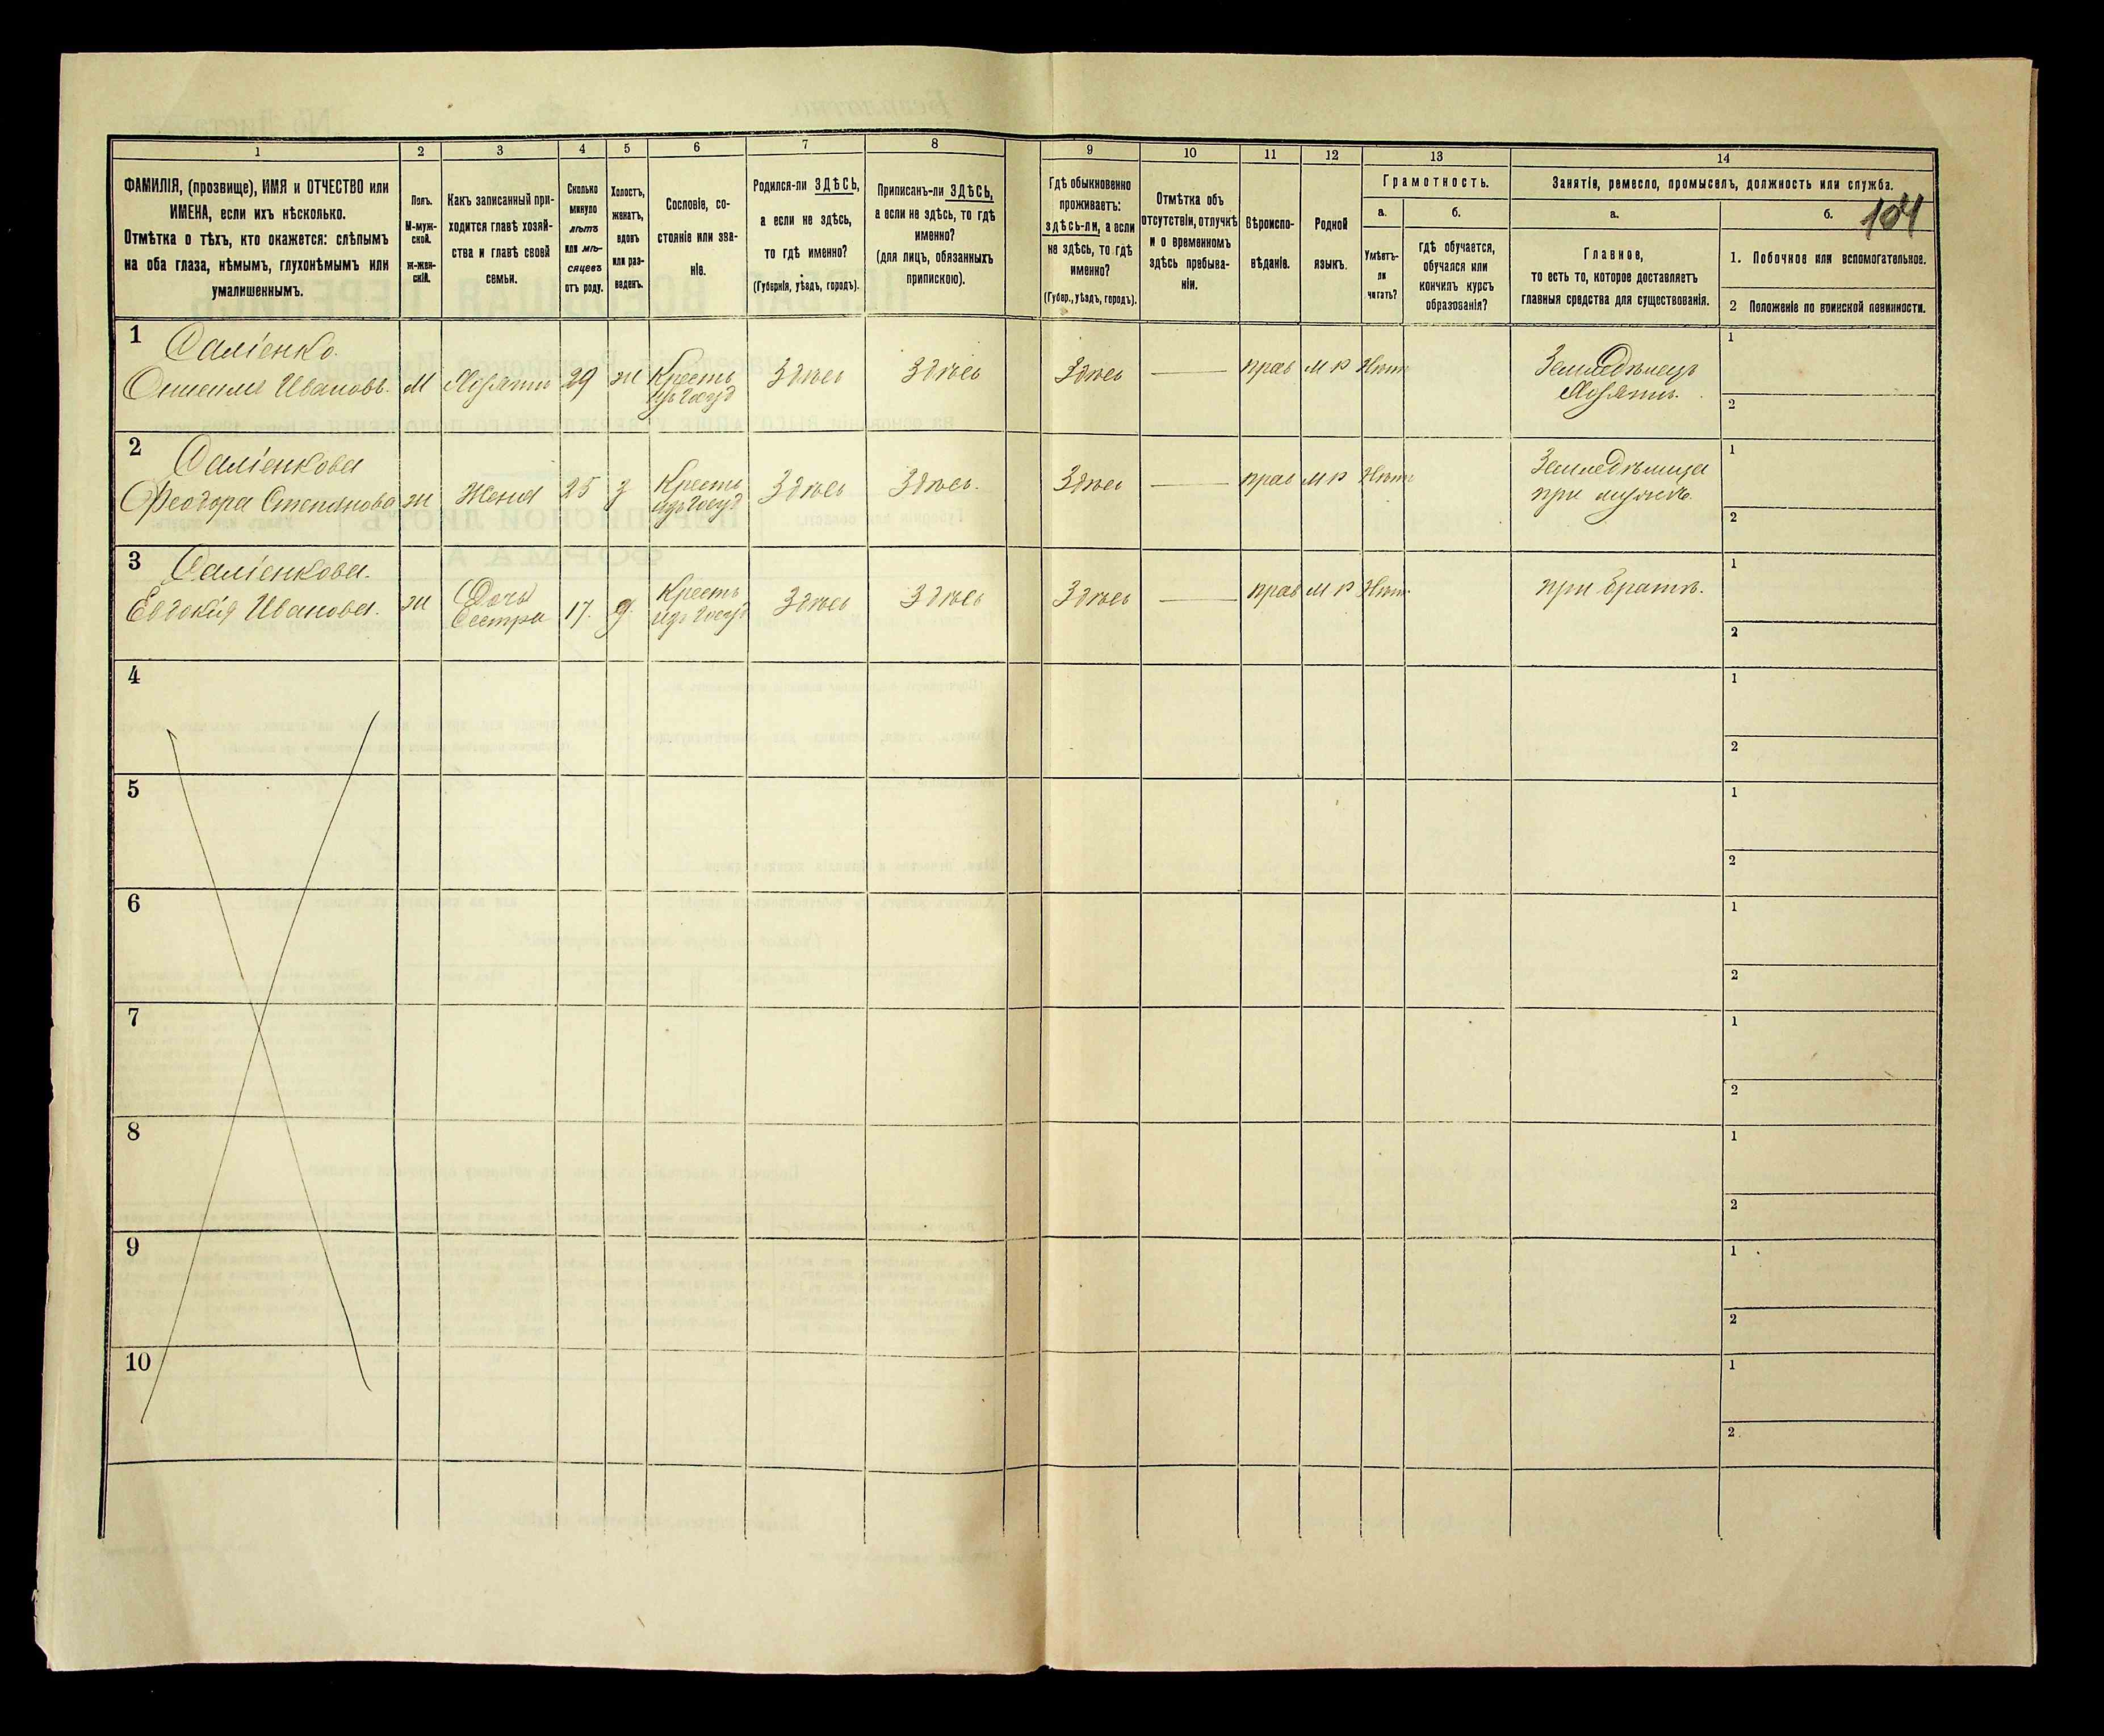 104
1 2 3 4 5 6 7 8 9 10 11 12 13 14
ФАМИЛІЯ, (прозвище), ИМЯ и ОТЧЕСТВО или
ИМЕНА, если ихъ нѣсколько.
Отмѣтка о тѣхъ, кто окажется: слѣпымъ
на оба глаза, нѣмымъ, глухонѣмымъ или
умалишеннымъ.
Полъ.
М-муж-
ской.
ж-жен-
скій.
Какъ записанный при-
ходится главѣ хозяй-
ства и главѣ своей
семьи.
Сколько
минуло
лѣтъ
или мѣ-
сяцевъ
отъ роду.
Холостъ,
женатъ,
вдовъ
или раз-
веденъ.
Сословіе, со-
стояніе или зва-
ніе.
Родился-ли ЗДѢСЬ,
а если не здѣсь,
то гдѣ именно?
(Губернія, уѣздъ, городъ).
Приписанъ-ли ЗДѢСЬ,
а если не здѣсь, то гдѣ
именно?
(для лицъ, обязанныхъ
припискою).
Гдѣ обыкновенно
проживаетъ:
здѣсь-ли, а если
не здѣсь, то гдѣ
именно?
(Губер., уѣздъ, городъ).
Отмѣтка объ
отсутствіи, отлучкѣ
и о временномъ
здѣсь пребыва-
ніи.
Вѣроиспо-
вѣданіе.
Родной
языкъ.
Грамотность.
а.
Умѣетъ-
ли
читать?
б.
гдѣ обучается,
обучался или
кончилъ курсъ
образованія?
Занятіе, ремесло, промыселъ, должность или служба.
а.
Главное,
то есть то, которое доставляетъ
главныя средства для существованія.
б.
1. Побочное или вспомогательное.
2 Положеніе по воинской повинности.
1 Саліенко.
Ивановъ. м Хозяинъ 29 ж Кресть
изъ Госуд Здѣсь Здѣсь Здѣсь — прав м р Нѣтъ Земледѣлецъ
Хозяинъ. 1
2
2 Саліенкова
Феодора Степанова ж Жена 25 з Кресть
изъ Госуд Здѣсь Здѣсь. Здѣсь — прав м р Нѣтъ Земледѣлица
при мужѣ. 1
2
3 Саліенкова.
Евдокія Иванова. ж Дочь
Сестра 17. д. Кресть
изъ Госуд Здѣсь Здѣсь Здѣсь — прав м р Нѣтъ при братѣ. 1
2
4 1
2
5 1
2
6 1
2
7 1
2
8 1
2
9 1
2
10 1
2